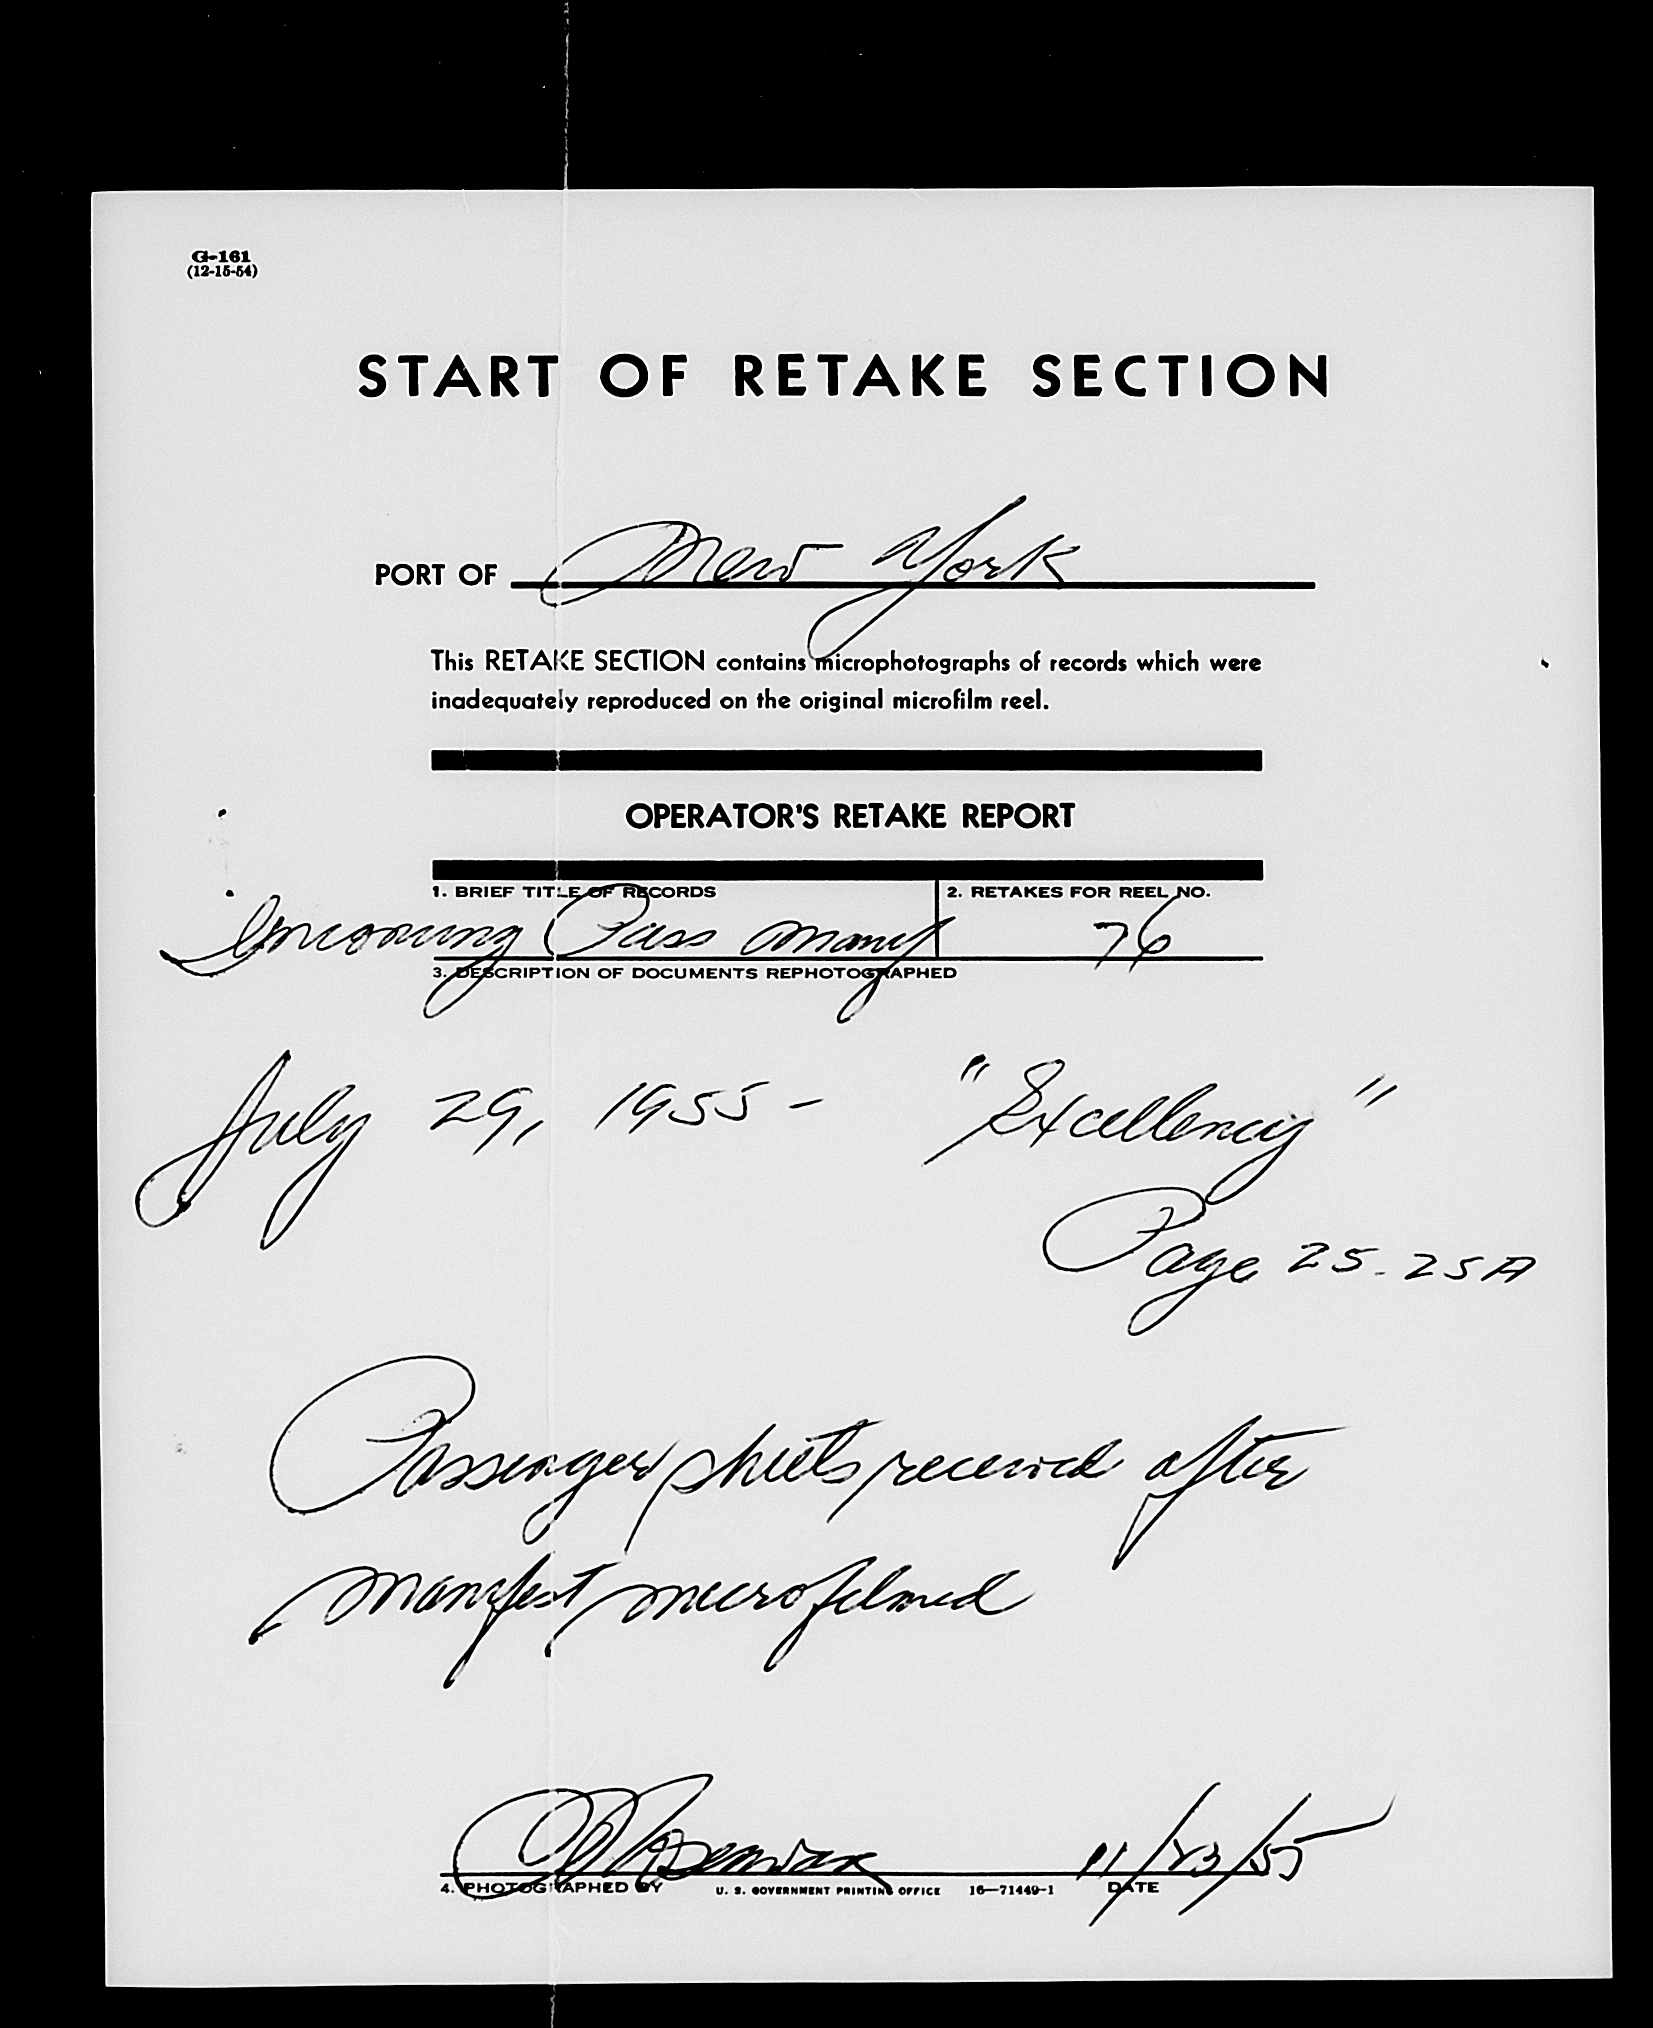 G-161
(12-15-54)
START OF RETAKE SECTION
PORT OF New York
This RETAKE SECTION contains microphotographs of records which were
inadequately reproduced on the original microfilm reel.
OPERATOR'S RETAKE REPORT
1. BRIEF TITLE OF RECORDS 2. RETAKES FOR REEL NO.
Incoming Pass Manf 76
3. DESCRIPTION OF DOCUMENTS REPHOTOGRAPHED
July 29, 1955 - "Excellency"
Page 25-25A
Passenger sheets received after
manifest microfilmed
11/23/55
4. PHOTOGRAPHED BY U. S. GOVERNMENT PRINTING OFFICE 16—71449-1 DATE